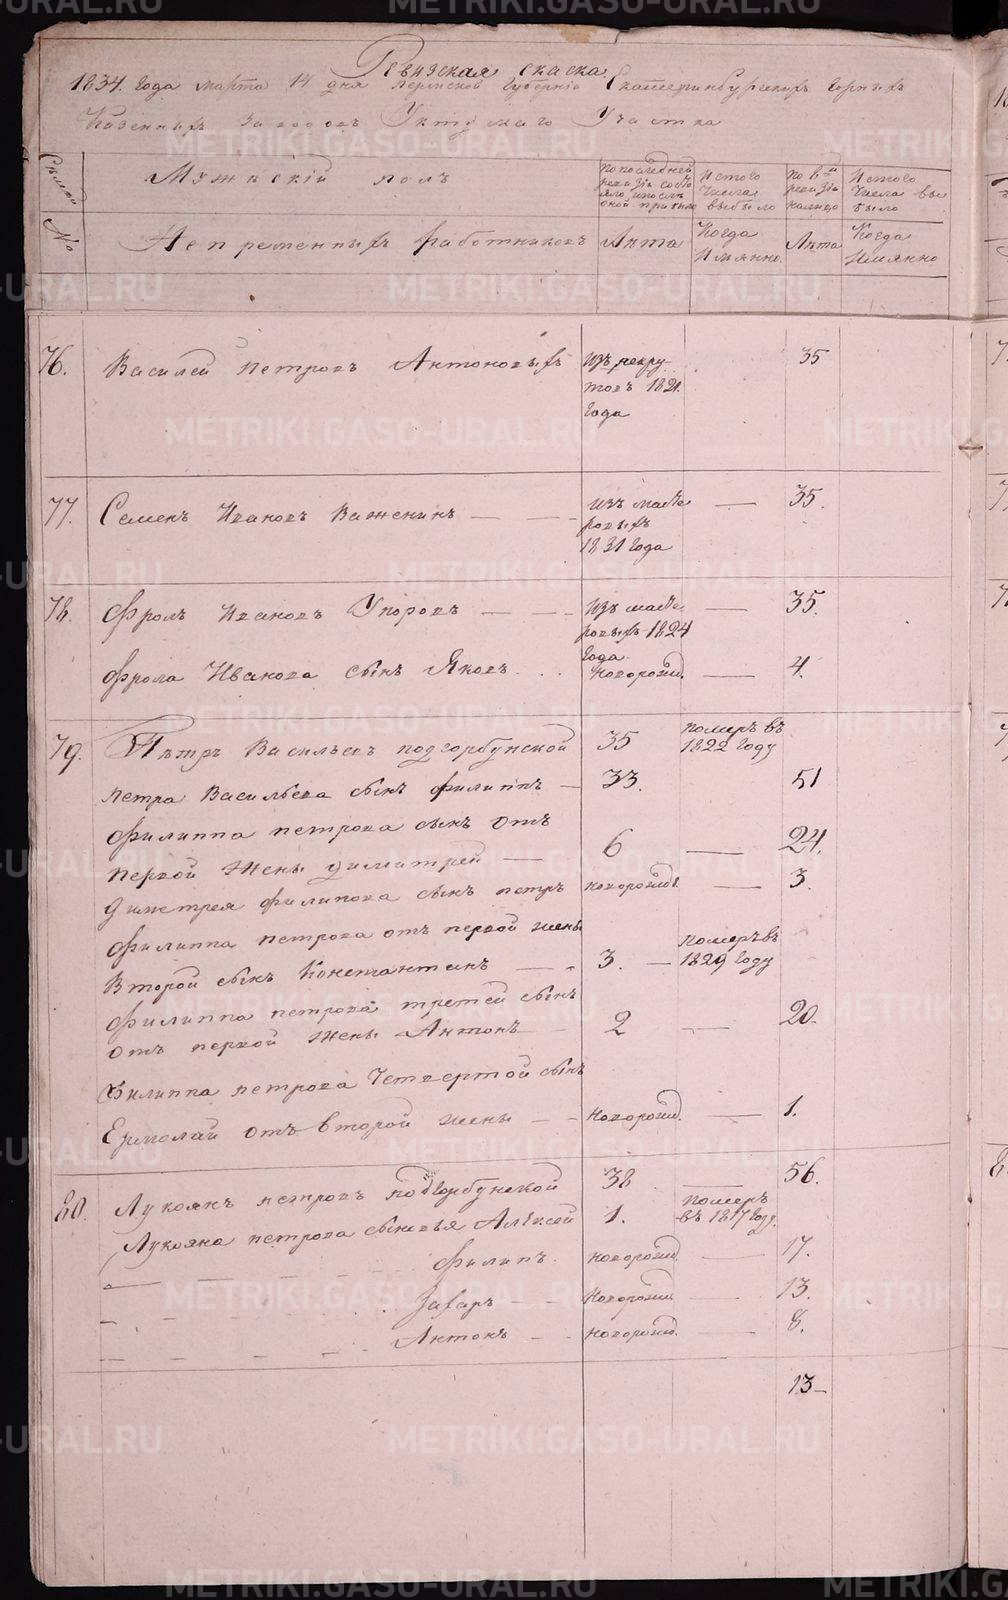 Ревизская скаска
1834 года марта 14 дня Пермской Губернiи Екатеринбургскихъ Горныхъ
Казенныхъ Заводовъ Уктускаго Участка
Семей
№
Мужескiй полъ
Непременныхъ работниковъ
По последней ревизiи состояло и после оной прибыло
Лета
Из того числа выбыло
Когда имянно
По 8ой ревизiи налицо
Лета
Из того числа выбыло
Когда имянно
76. Василей Петровъ Антоновыхъ изъ рекру- 35
товъ 1821.
года
77. Семенъ Ивановъ Важенинъ — — изъ масте — 35.
ровыхъ
1831 года
78. Фролъ Ивановъ Упоровъ — — изъ масте — 35.
ровыхъ 1824
года
Фрола Иванова сынъ Яковъ новорожд. — 4.
79. Петръ Васильевъ подгорбунской 35 померъ въ
1822 году
Петра Васильева сынъ филиппъ — 33. 51
Филиппа петрова сынъ отъ
первой жены димитрей — 6 — 24.
Димитрея филипова сынъ петръ новорожд. — 3.
Филиппа петрова отъ первой жены
второй сынъ Констант​инъ — 3. — померъ въ
1829 году
Филиппа петрова третей сынъ
отъ первой жены Антонъ — 2 — 20.
Филиппа петрова Четвертой сынъ
Ермолай отъ второй жены — новорожд. — 1.
80. Лукоянъ петровъ подгорбунской 38 — 56.
Лукояна петрова сыновья Алексей 1. померъ
въ 1817 году.
— — — Филипъ. новорожд. — 17.
— — — Захаръ — — новорожд. — 13.
— — — Антонъ — — новорожд. — 8.
13 —
METRIKI.GASO-URAL.RU